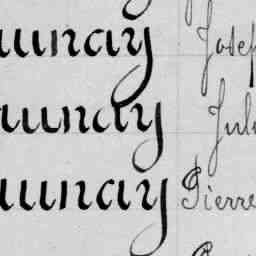 aunay Josep
aunay Jule
aunay Pierre